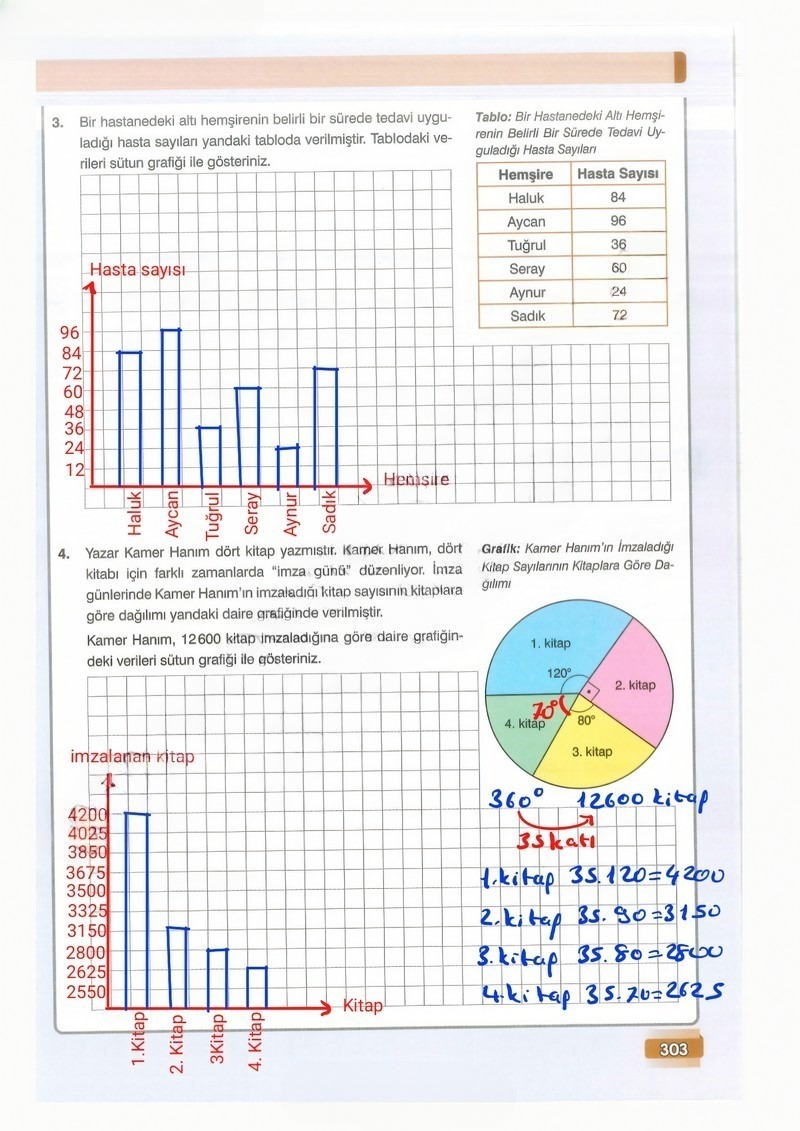 3. Bir hastanedeki altı hemşirenin belirli bir sürede tedavi uygu-
ladığı hasta sayıları yandaki tabloda verilmiştir. Tablodaki ve-
rileri sütun grafiği ile gösteriniz.
Tablo: Bir Hastanedeki Altı Hemşi-
renin Belirli Bir Sürede Tedavi Uy-
guladığı Hasta Sayıları
Hemşire Hasta Sayısı
Haluk 84
Aycan 96
Tuğrul 36
Seray 60
Aynur 24
Sadık 72
Hasta sayısı
96
84
72
60
48
36
24
12
Hemşire
Haluk
Aycan
Tuğrul
Seray
Aynur
Sadık
4. Yazar Kamer Hanım dört kitap yazmıştır. Kamer Hanım, dört
kitabı için farklı zamanlarda “imza günü” düzenliyor. İmza
günlerinde Kamer Hanım’ın imzaladığı kitap sayısının kitaplara
göre dağılımı yandaki daire grafiğinde verilmiştir.
Kamer Hanım, 12 600 kitap imzaladığına göre daire grafiğin-
deki verileri sütun grafiği ile gösteriniz.
Grafik: Kamer Hanım’ın İmzaladığı
Kitap Sayılarının Kitaplara Göre Da-
ğılımı
1. kitap
120°
2. kitap
70°
4. kitap
80°
3. kitap
imzalanan kitap
4200
4025
3850
3675
3500
3325
3150
2800
2625
2550
Kitap
1.Kitap
2. Kitap
3Kitap
4. Kitap
360° 12600 kitap
35 katı
1.kitap 35.120=4200
2.kitap 35.90=3150
3.kitap 35.80=2800
4.kitap 35.70=2625
303